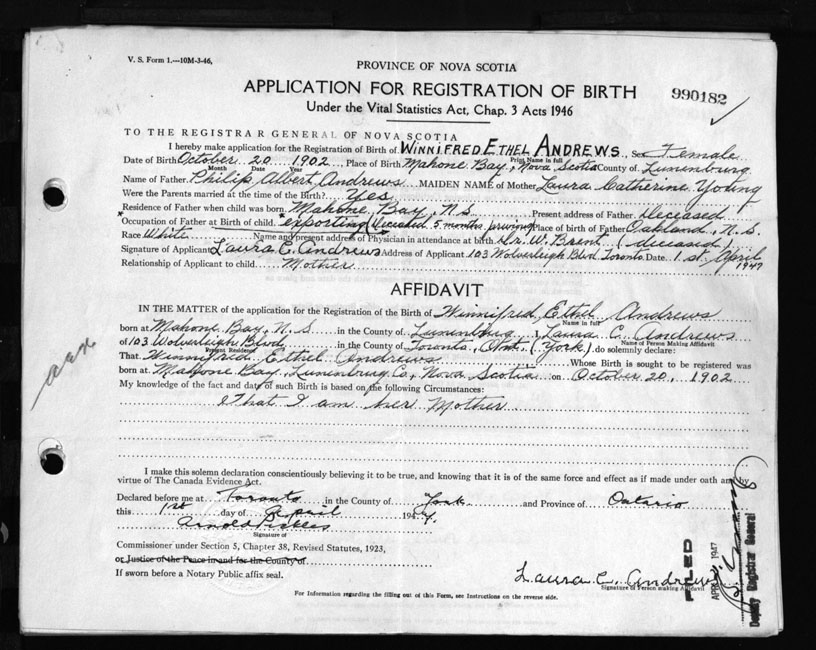 V. S. Form 1.—10M-3-46,
PROVINCE OF NOVA SCOTIA
APPLICATION FOR REGISTRATION OF BIRTH
990182
Under the Vital Statistics Act, Chap. 3 Acts 1946
TO THE REGISTRAR GENERAL OF NOVA SCOTIA
I hereby make application for the Registration of Birth of WINNIFRED ETHEL ANDREWS, Sex Female
Print Name in full
Date of Birth October 20 1902, Place of Birth Mahone Bay, Nova Scotia County of Lunenburg
Month Date Year
Name of Father Philip Albert Andrews MAIDEN NAME of Mother Laura Catherine Young
Were the Parents married at the time of the Birth? Yes
Residence of Father when child was born Mahone Bay, N.S. Present address of Father Deceased
Occupation of Father at Birth of child. exporting (Deceased 5 months previous) Place of Birth of Father Oakland, N.S.
Race White Name and present address of Physician in attendance at birth Dr. W. Brent (deceased)
Signature of Applicant Laura C. Andrews Address of Applicant 103 Wolverleigh Blvd. Toronto Date 1 st. April 1947
Relationship of Applicant to child Mother
AFFIDAVIT
IN THE MATTER of the application for the Registration of the Birth of Winnifred Ethel Andrews
Name in full
born at Mahone Bay, N.S in the County of Lunenburg I, Laura C. Andrews
Name of Person Making Affidavit
of 103 Wolverleigh Blvd in the County of Toronto, Ont. (York) do solemnly declare:
Present Residence
That Winnifred Ethel Andrews Whose Birth is sought to be registered was
born at Mahone Bay, Lunenburg Co., Nova Scotia on October 20, 1902
My knowledge of the fact and date of such Birth is based on the following Circumstances:
That I am her Mother
I make this solemn declaration conscientiously believing it to be true, and knowing that it is of the same force and effect as if made under oath and by
virtue of The Canada Evidence Act.
Declared before me at Toronto in the County of York and Province of Ontario
this 1st day of April 1947.
Arnold Pickles
Signature of
Commissioner under Section 5, Chapter 38, Revised Statutes, 1923,
or Justice of the Peace in and for the County of
If sworn before a Notary Public affix seal.
Laura C. Andrews
Signature of Person making Affidavit
For Information regarding the filling out of this Form, see Instructions on the reverse side.
FILED
1947
Deputy Registrar General